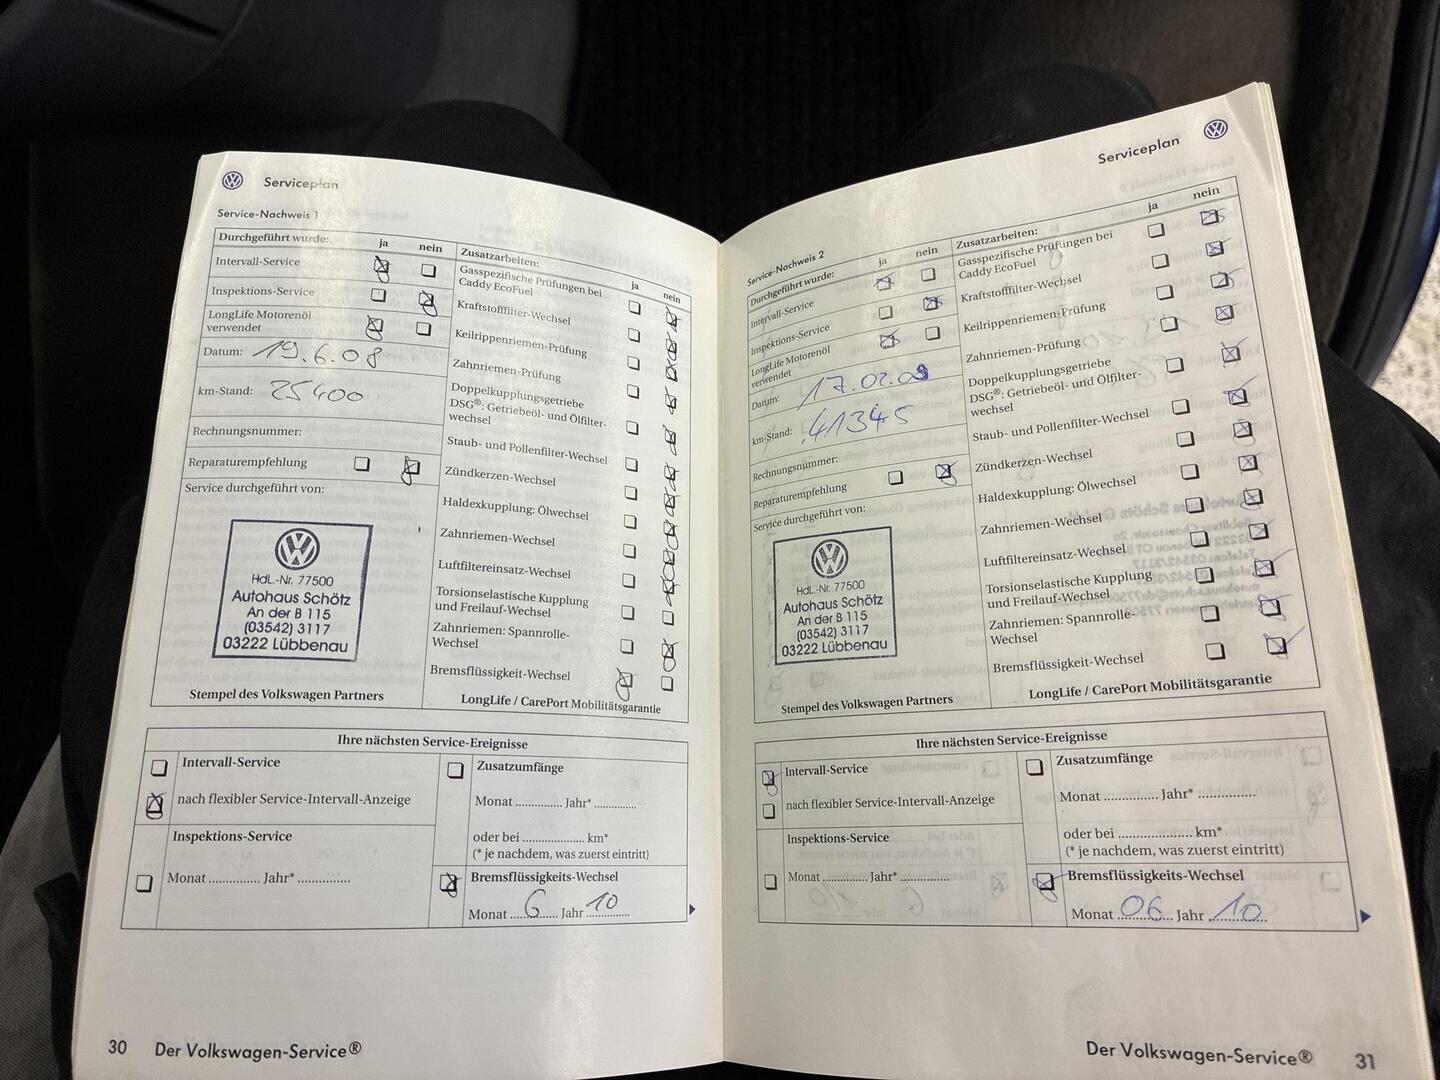 Serviceplan
Service-Nachweis 1
Durchgeführt wurde: ja nein
Intervall-Service
Inspektions-Service
LongLife Motorenöl
verwendet
Datum: 19.6.08
km-Stand: 25400
Rechnungsnummer:
Reparaturempfehlung
Service durchgeführt von:
Hdl.-Nr. 77500
Autohaus Schötz
An der B 115
(03542) 3117
03222 Lübbenau
Stempel des Volkswagen Partners
Zusatzarbeiten: ja nein
Gasspezifische Prüfungen bei
Caddy EcoFuel
Kraftstofffilter-Wechsel
Keilrippenriemen-Prüfung
Zahnriemen-Prüfung
Doppelkupplungsgetriebe
DSG®: Getriebeöl- und Ölfilter-
wechsel
Staub- und Pollenfilter-Wechsel
Zündkerzen-Wechsel
Haldexkupplung: Ölwechsel
Zahnriemen-Wechsel
Luftfiltereinsatz-Wechsel
Torsionselastische Kupplung
und Freilauf-Wechsel
Zahnriemen: Spannrolle-
Wechsel
Bremsflüssigkeit-Wechsel
LongLife / CarePort Mobilitätsgarantie
Ihre nächsten Service-Ereignisse
Intervall-Service
nach flexibler Service-Intervall-Anzeige
Inspektions-Service
Monat .............. Jahr* ..............
Zusatzumfänge
Monat .............. Jahr* ..............
oder bei .................... km*
(* je nachdem, was zuerst eintritt)
Bremsflüssigkeits-Wechsel
Monat ....6...... Jahr ..10......
30 Der Volkswagen-Service®
Serviceplan
Service-Nachweis 2
Durchgeführt wurde: ja nein
Intervall-Service
Inspektions-Service
LongLife Motorenöl
verwendet
Datum: 17.02.09
km-Stand: 41345
Rechnungsnummer:
Reparaturempfehlung
Service durchgeführt von:
Hdl.-Nr. 77500
Autohaus Schötz
An der B 115
(03542) 3117
03222 Lübbenau
Stempel des Volkswagen Partners
Zusatzarbeiten: ja nein
Gasspezifische Prüfungen bei
Caddy EcoFuel
Kraftstofffilter-Wechsel
Keilrippenriemen-Prüfung
Zahnriemen-Prüfung
Doppelkupplungsgetriebe
DSG®: Getriebeöl- und Ölfilter-
wechsel
Staub- und Pollenfilter-Wechsel
Zündkerzen-Wechsel
Haldexkupplung: Ölwechsel
Zahnriemen-Wechsel
Luftfiltereinsatz-Wechsel
Torsionselastische Kupplung
und Freilauf-Wechsel
Zahnriemen: Spannrolle-
Wechsel
Bremsflüssigkeit-Wechsel
LongLife / CarePort Mobilitätsgarantie
Ihre nächsten Service-Ereignisse
Intervall-Service
nach flexibler Service-Intervall-Anzeige
Inspektions-Service
Monat .............. Jahr* ..............
Zusatzumfänge
Monat .............. Jahr* ..............
oder bei .................... km*
(* je nachdem, was zuerst eintritt)
Bremsflüssigkeits-Wechsel
Monat ..06.... Jahr ..10......
Der Volkswagen-Service® 31